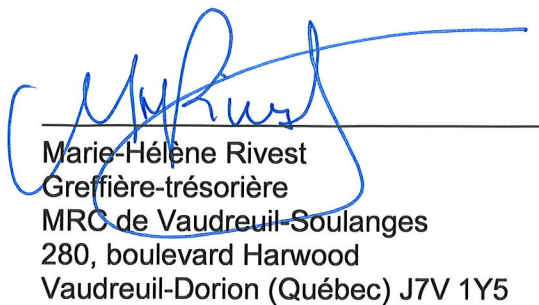 MHRivest
Marie-Hélène Rivest
Greffière-trésorière
MRC de Vaudreuil-Soulanges
280, boulevard Harwood
Vaudreuil-Dorion (Québec) J7V 1Y5